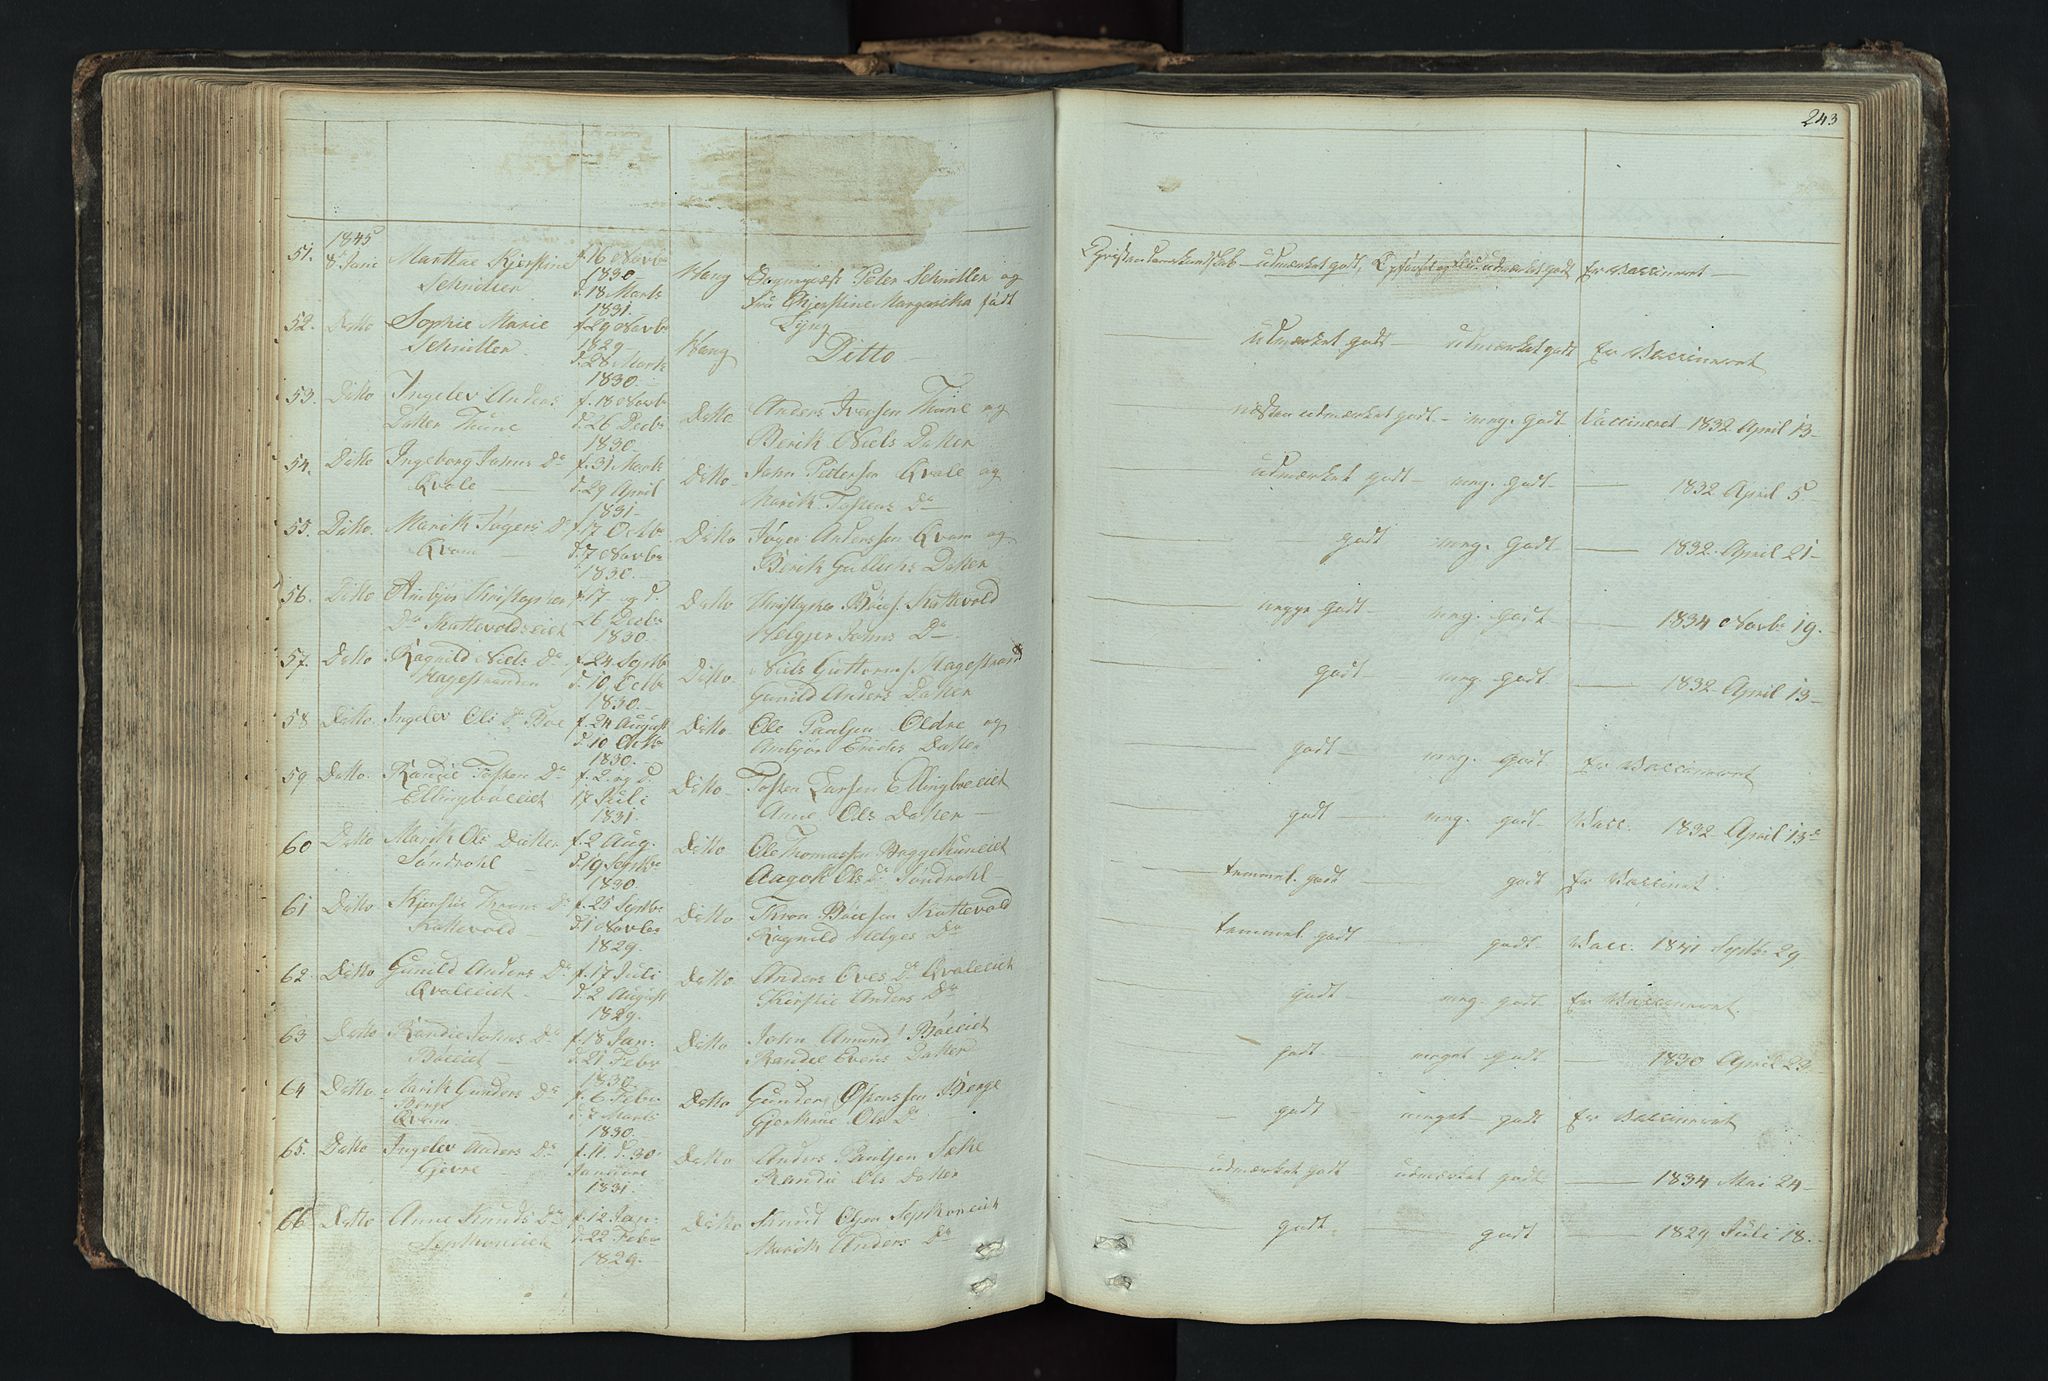 243
1845
51. 8 Juni Marthae Kjerstine Schnitler f. 16 Novbr 1830 d. 18 Marts 1831 Vang Peter Schnitler og Fru Margaretha født Lyng
Christendomskundskab - udmærket godt, udmærket godt Er Vaccineret
52. Ditto Sophie Marie Schnitler f. 29 Novbr 1829 d. 28 Marts 1830. Vang Ditto
udmærket godt - udmærket godt Er Vaccineret
53. Ditto Ingelev Anders Datter Thune f. 18 Novbr d. 26 Decbr 1830. Ditto Anders Iversen Thune og Berit Niels Datter
næsten udmærket godt - meg. godt Vaccineret 1832 April 13
54. Ditto Ingeborg Johns Dr Qvale f. 31 Marts d. 29 April 1831 Ditto John Pedersen Qvale og Marit Tostens Dr
udmærket godt - meg. godt - 1832 April 5
55. Ditto Marik Jøgers Dr Qvam f. 17 Octbr d. 7 Novbr 1830. Ditto Jøger Anderssen Qvam og Berit Gulleiks Datter
godt meg. Godt - 1832 April 21
56. Ditto Christopher Dr Kattevoldseiet f. 17 og d. 26 Decbr 1830. Ditto Christopher Kattevold Johns Dr
godt - meg. godt - 1834 Novbr 19.
57. Ditto Ragnild Niels Dr Hagestranden f. 24 Septbr d. 10 Octbr 1830. Ditto Niels Hagestrand Gunild Anders Datter
godt - meg. godt - 1832 April 13
58 Ditto Ingelev Ols Dr Boe f. 24 August d. 10 Octbr 1830. Ditto Ole Paulsen Oldre og Ambjør Endres Datter
godt - meg. godt Er Vaccineret
59 Ditto. Randie Tosten Dr Ellingbøeeiet f. 2. og d. 17 Juli 1831. Ditto Tosten Larsen Ellingboeeiet Anne Ols Datter
godt - meg. godt Vacc. 1832 April 13
60 Ditto Marik Ols Datter Søndrohl f. 2 Aug. d. 19 Septbr 1830 Ditto Ole Thomassen Baggethuneiet Aagot Ols Dr Søndrohl
temmel. godt - godt Er Vaccinet.
61 Ditto Kjerstie Throns Dr Kattevold f. 25 Septbr d. 1 Novbr 1829. Ditto Thron Bøiesen Kattevold Ragnild Helges Dr
temmel. godt - godt Vacc. 1841 Septbr 29
62. Ditto Gunild Anders Dr Qvaleeiet f. 17 Juli d. 2 August 1829. Ditto Anders Qvaleeiet Kirstie Anders Dr
godt - meg. godt Er Vaccineret.
63 Ditto Randie Johns Dr Bøeeiet f. 18 Jan: d. 21 Febr 1830. Ditto John Amund. Bøeeiet Randie Evens Datter
godt - meget godt - 1830 April 23
64 Ditto Marik Gunders Dr Berge Qvam f. 6 Febr d. 7 Marts 1830. Ditto Gunder Østenssen Berge Gjertrue Ols Dr
godt meget godt Er Vaccineret
65. Ditto Ingelev Anders Dr Gjevre f. 11 d. 30 Januar 1831. Ditto Anders Paulsen Sæte Randie Ols Datter
udmærket godt udmærket godt - 1834 Mai 24
66 Ditto Anne Knuds Dr f. 12 Jan: d. 22 Febr 1829. Ditto Knud Olsen Marik Anders Dr
godt - godt - 1829 Juli 18.